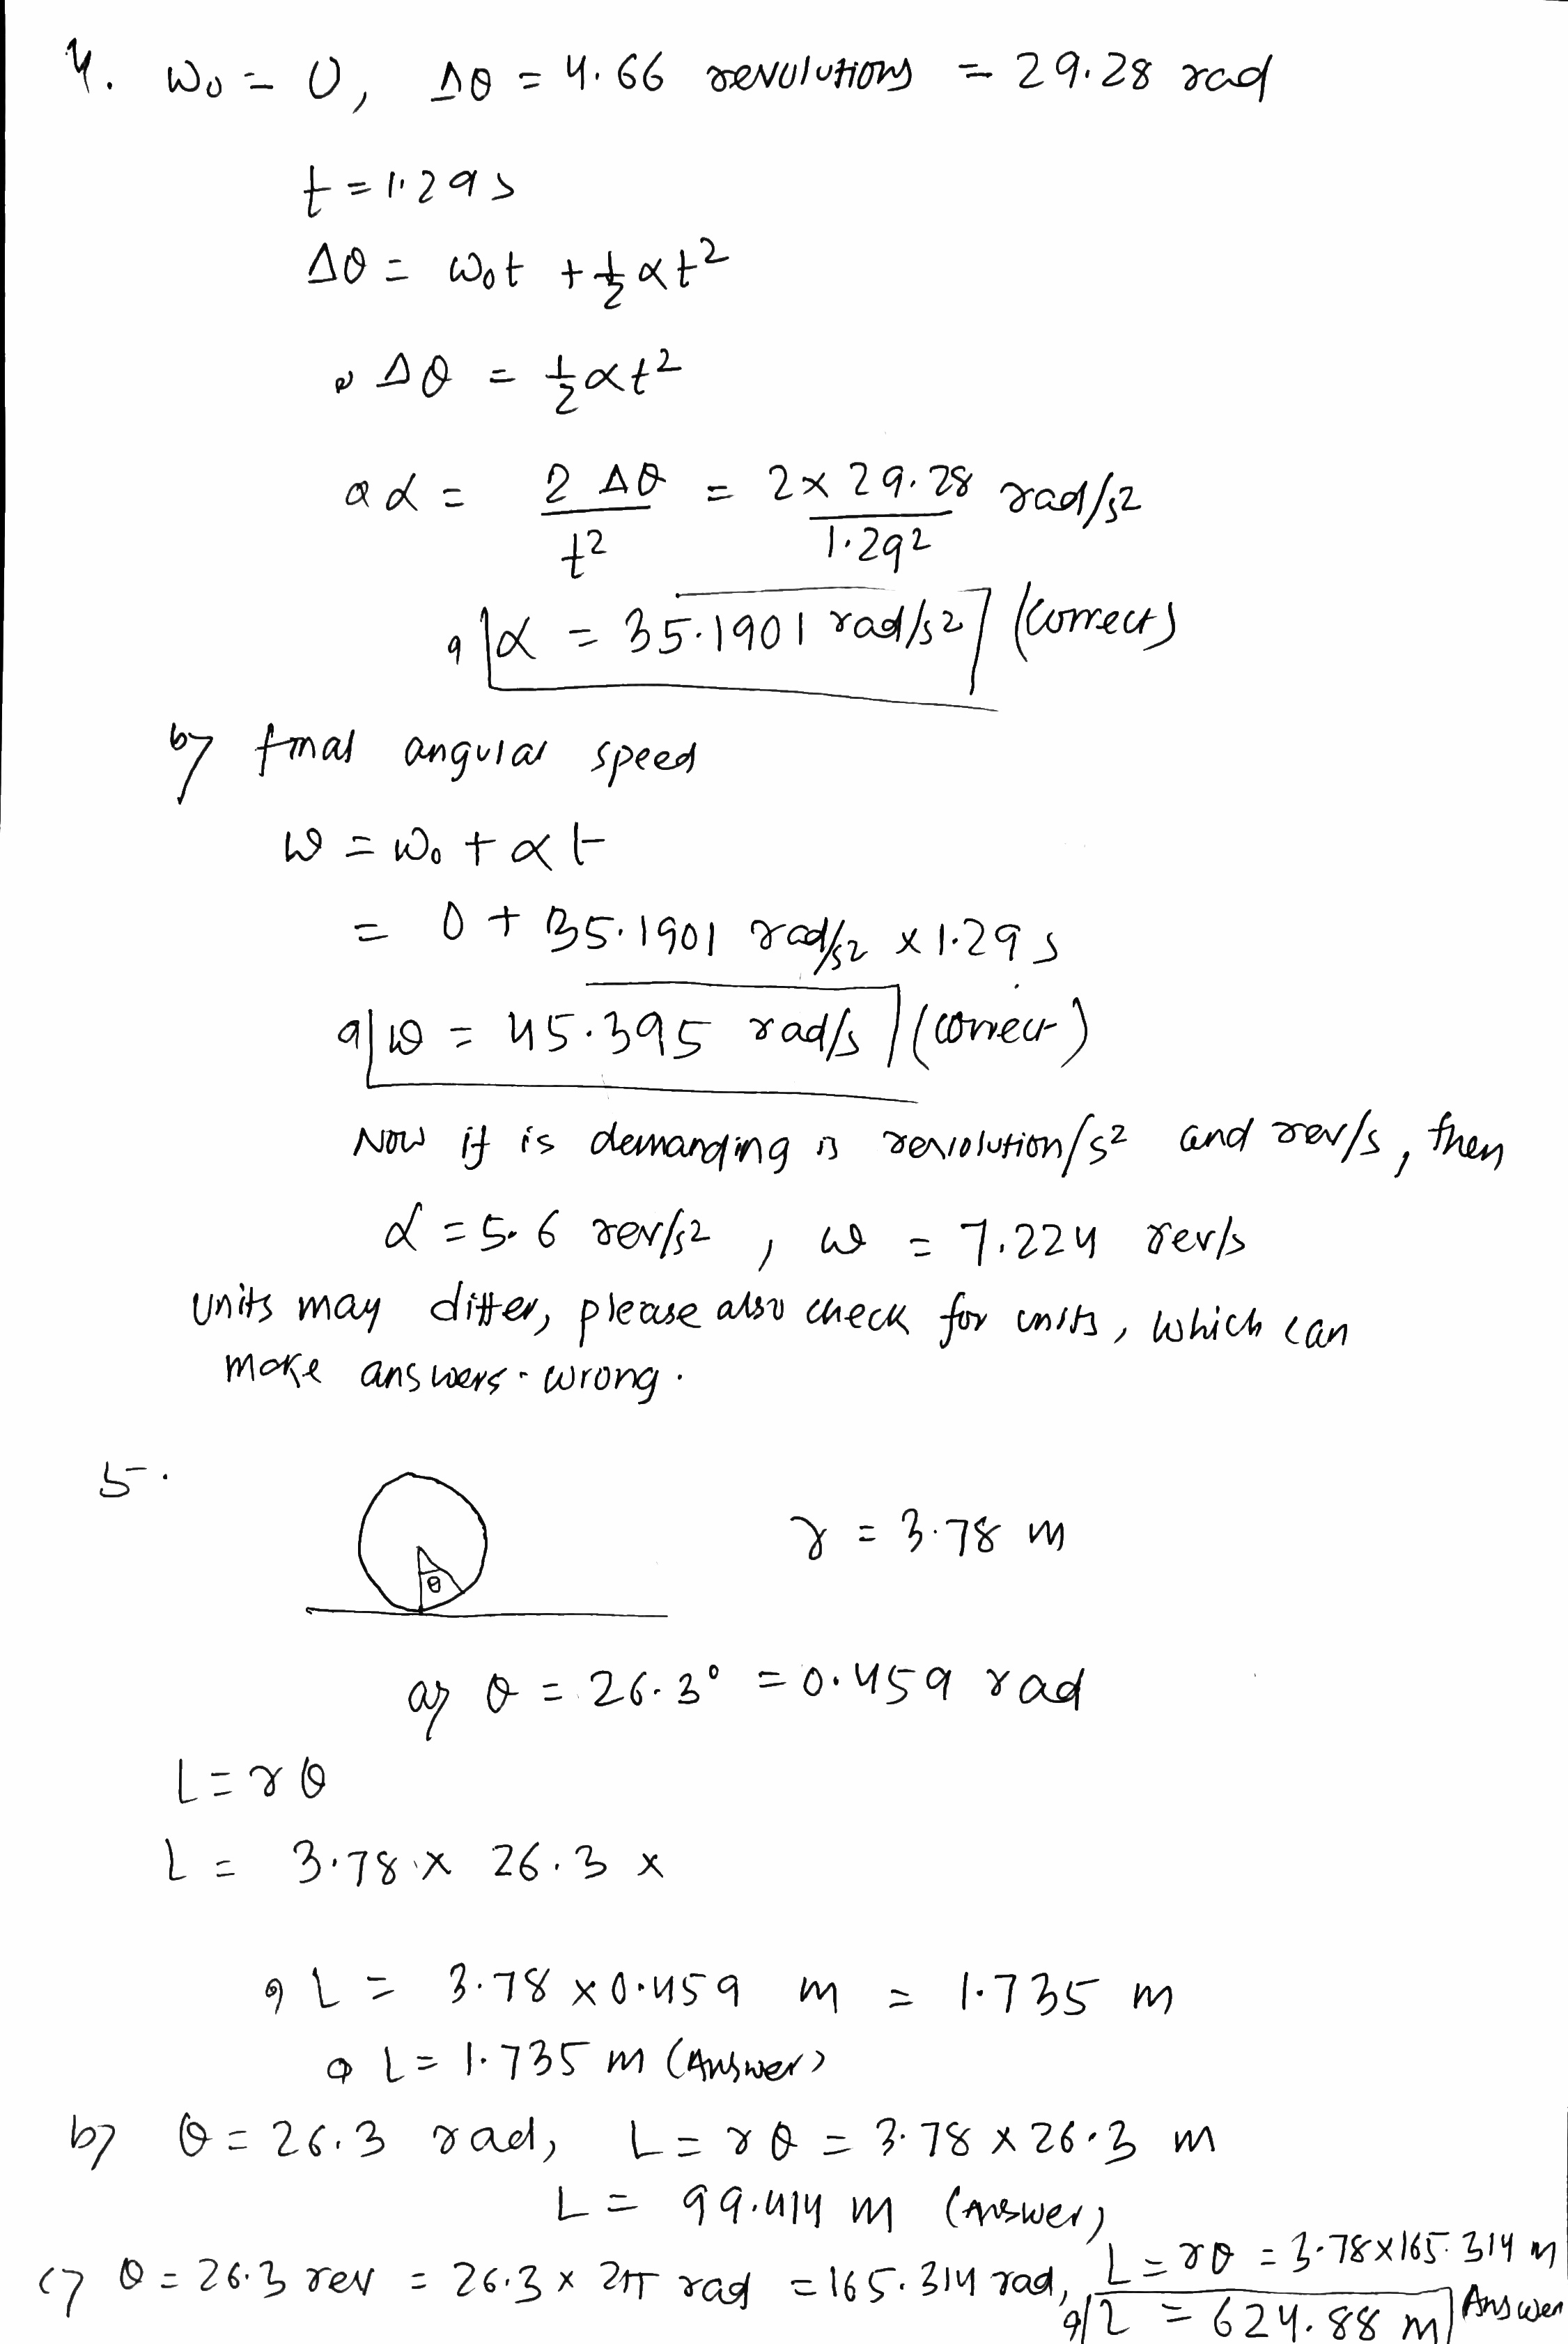 4. ω₀ = 0, Δθ = 4.66 revolutions = 29.28 rad
t = 1.29 s
Δθ = ω₀t + ½αt²
Δθ = ½αt²
α = 2Δθ/t² = 2×29.28/1.29² rad/s²
α = 35.1901 rad/s² (correct)
b) final angular speed
ω = ω₀ + αt
= 0 + 35.1901 rad/s² × 1.29 s
ω = 45.395 rad/s (correct)
Now if is demanding is revolution/s² and rev/s, then
α = 5.6 rev/s², ω = 7.224 rev/s
units may differ, please also check for units, which can
make answers wrong.
5.
θ
r = 3.78 m
a) θ = 26.3° = 0.459 rad
L = rθ
L = 3.78 × 26.3 ×
L = 3.78 × 0.459 m = 1.735 m
L = 1.735 m (Answer)
b) θ = 26.3 rad, L = rθ = 3.78 × 26.3 m
L = 99.414 m (Answer)
c) θ = 26.3 rev = 26.3 × 2π rad = 165.314 rad, L = rθ = 3.78×165.314 m
L = 624.88 m Answer